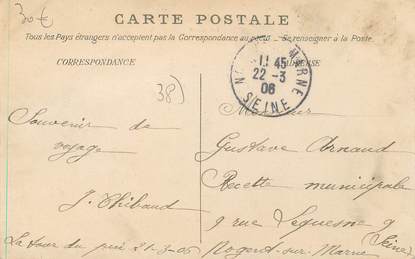 30€
CARTE POSTALE
Tous les Pays étrangers n'acceptent pas la Correspondance au recto - Se renseigner à la Poste.
CORRESPONDANCE
ADRESSE
NOGENT-S-MARNE
11 45
22 - 3
06
SEINE
38)
Souvenir de
voyage
J. Thibaud
La tour du pin 21-3-06
Monsieur
Gustave Arnaud
Recette municipale
9 rue Lequesne 9
Nogent-sur-Marne
(Seine)